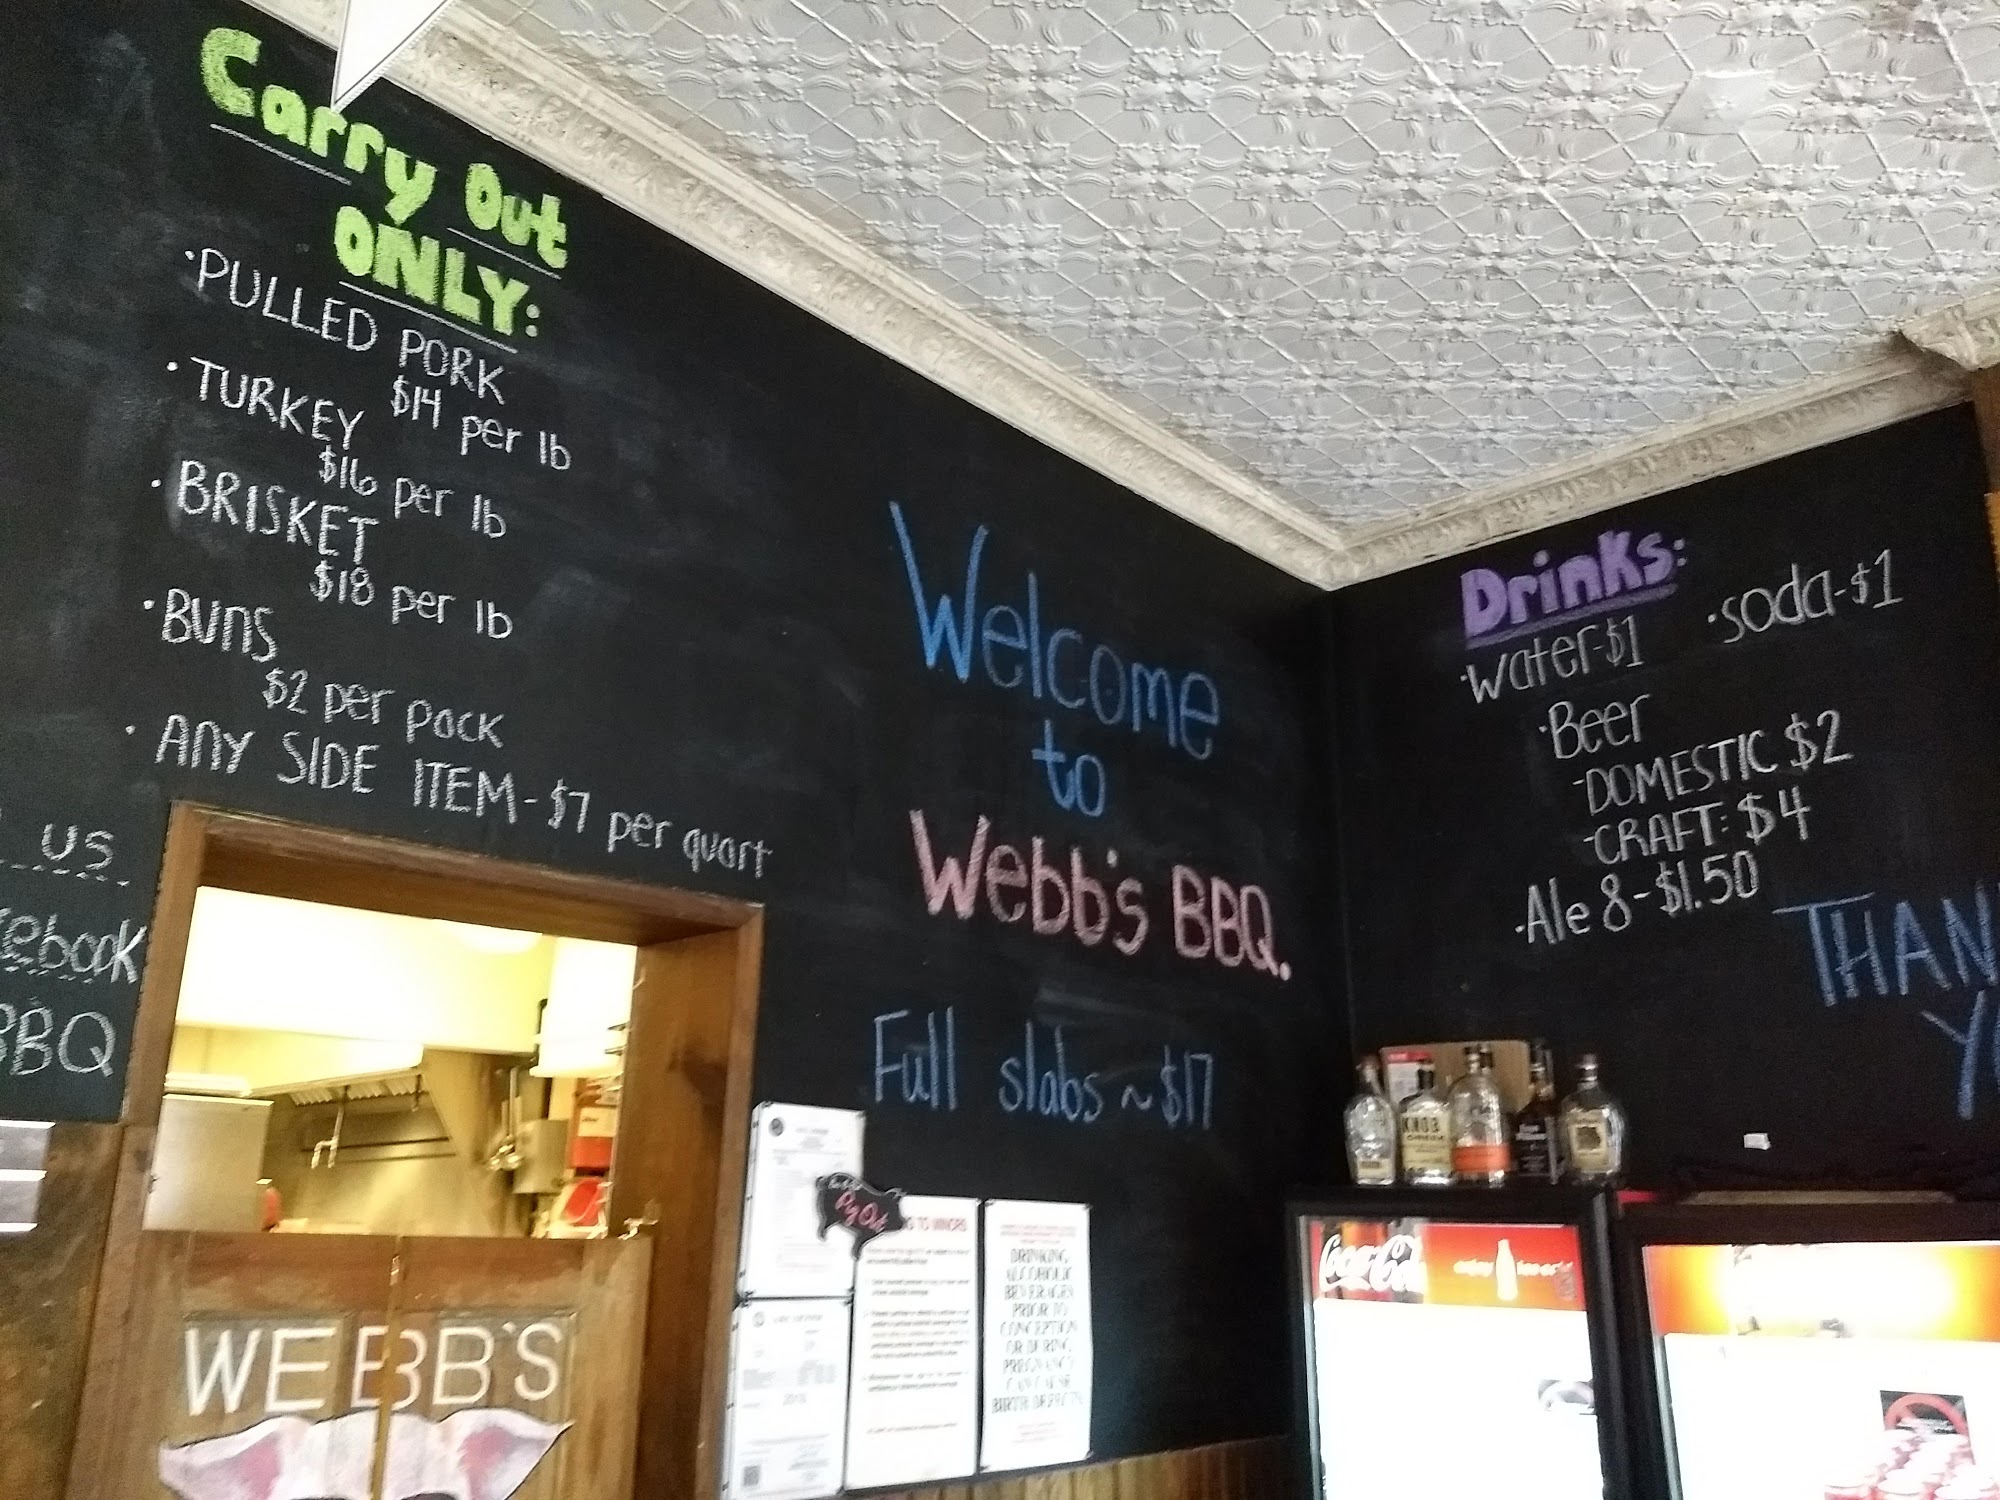 Carry Out
ONLY:
·PULLED PORK
$14 per lb
·TURKEY
$16 per lb
·BRISKET
$18 per lb
·BUNS
$2 per pack
·ANY SIDE ITEM-$7 per quart
US
BBQ
Welcome
to
Webb's BBQ.
Full slabs ~ $17
Drinks:
·water-$1
·soda-$1
·Beer
-DOMESTIC $2
-CRAFT: $4
·Ale 8-$1.50
WEBB'S
Pig Out
TO MINORS
DRINKING
ALCOHOLIC
BEVERAGES
PRIOR TO
CONCEPTION
OR DURING
PREGNANCY
CAN CAUSE
BIRTH DEFECTS
KNOB
CREEK
Coca-Cola
enjoy